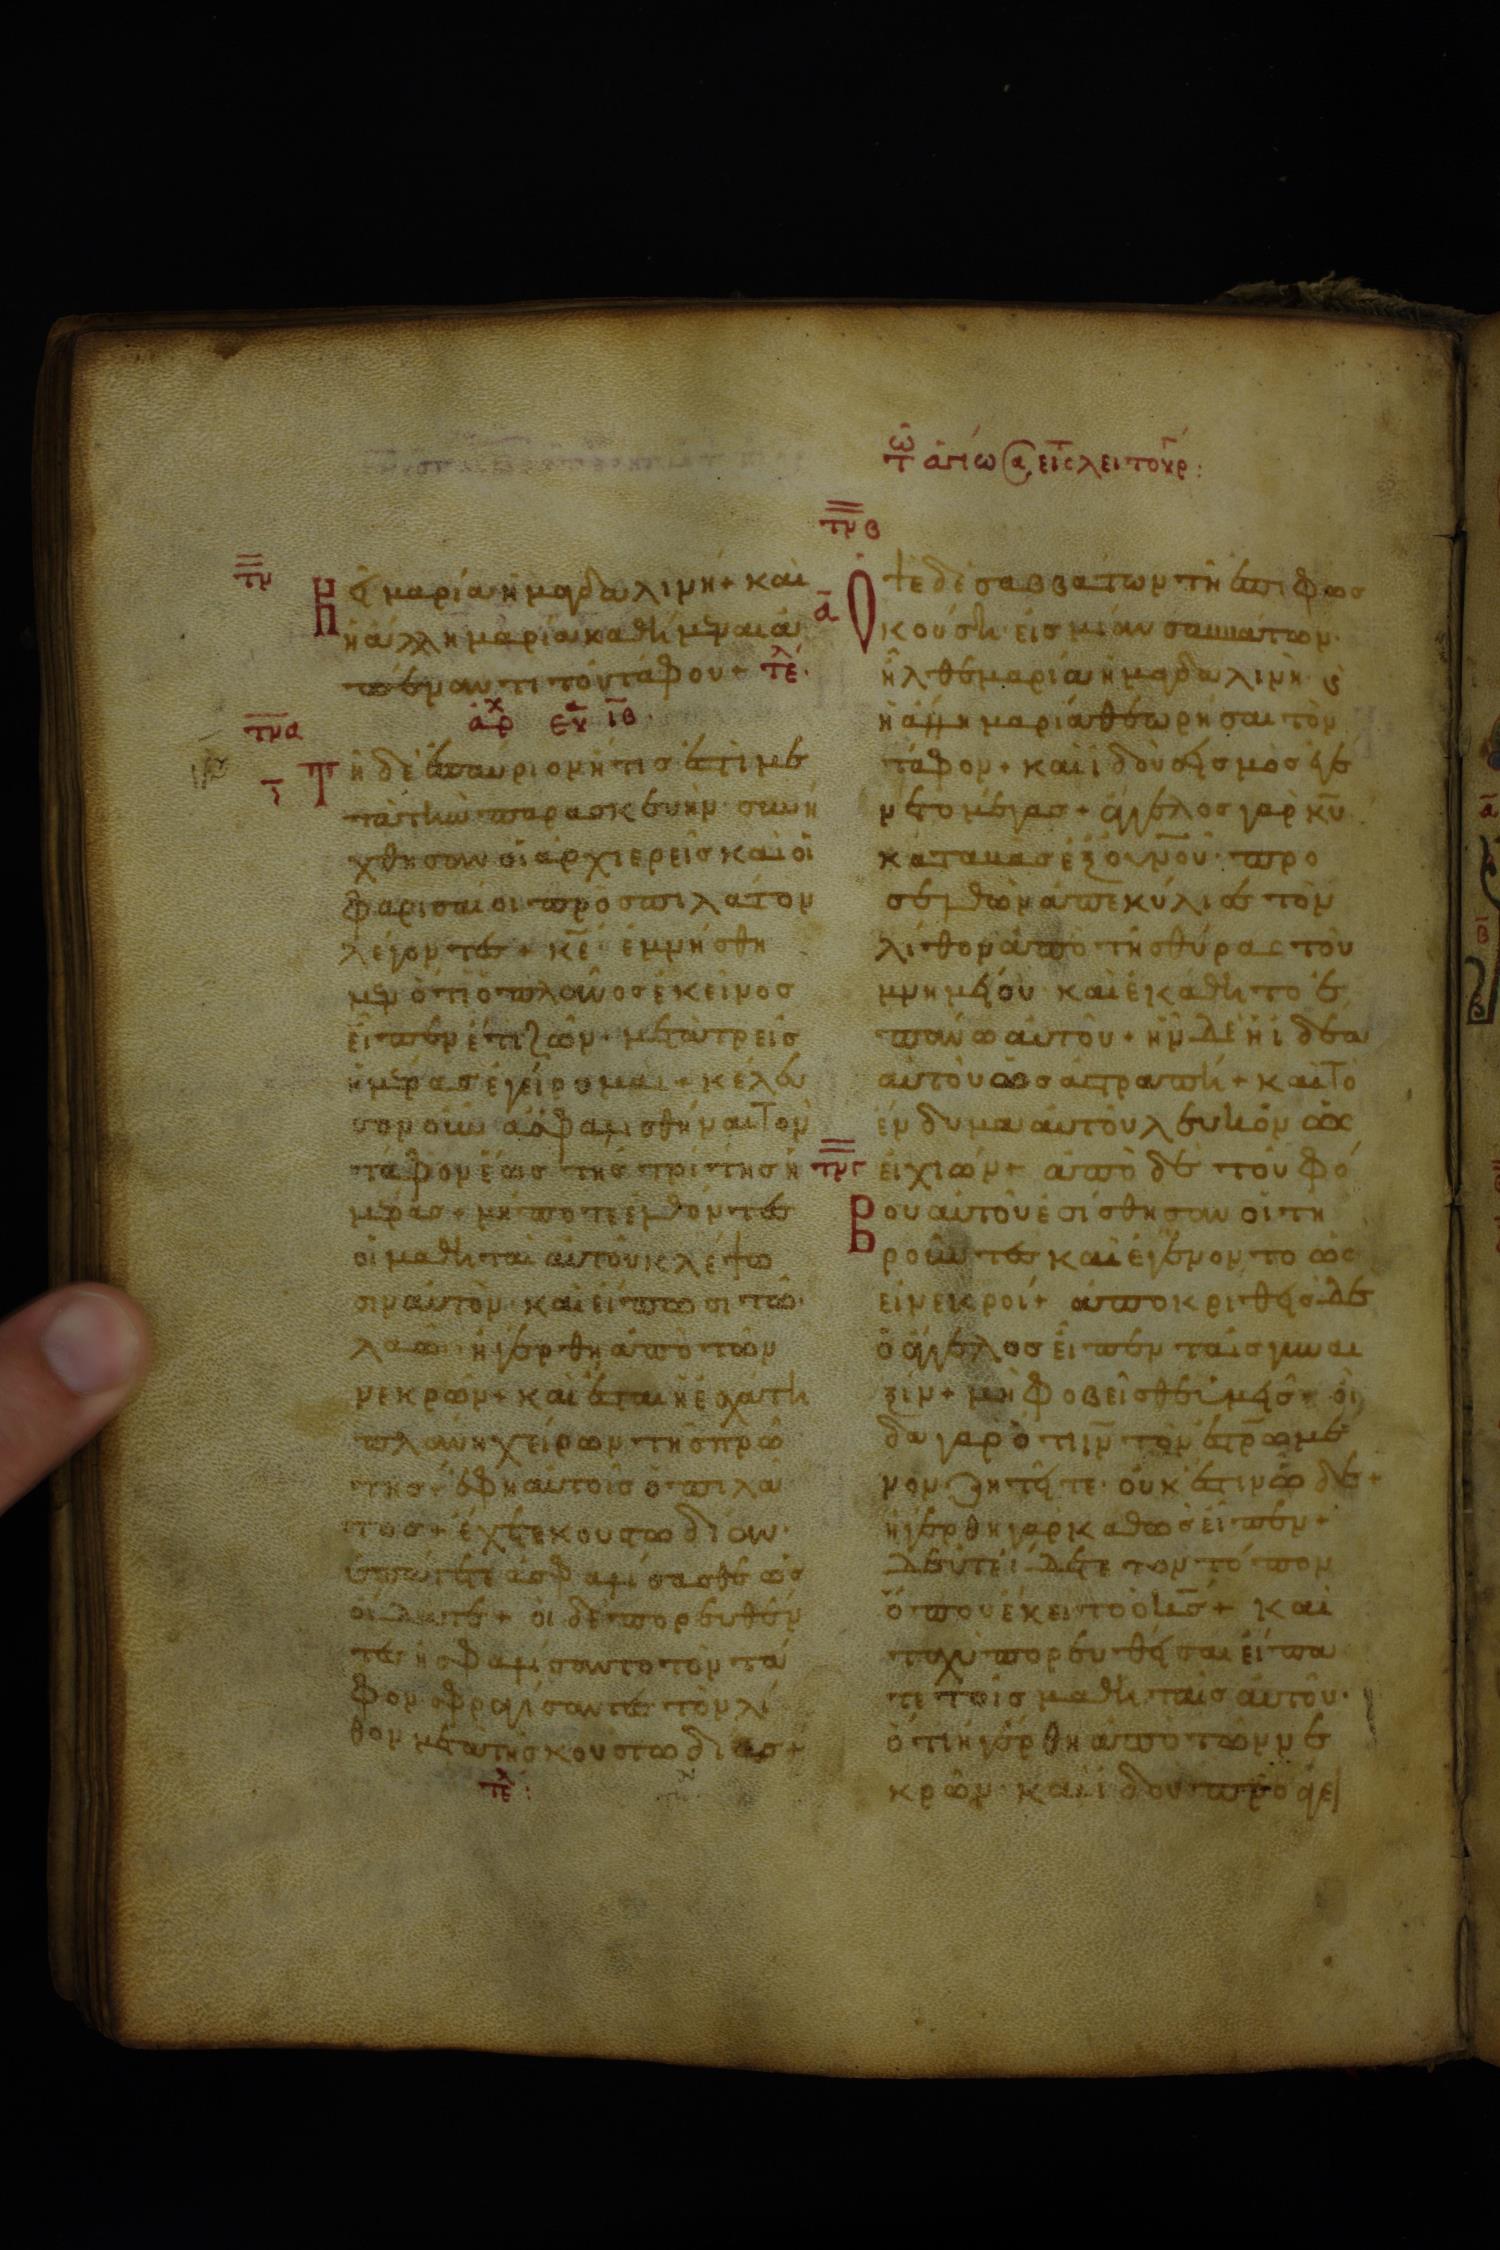 τῶ ἁγίω ϲα εἰς λειτουρ:
τμ
Ην δὲ μαρία ἡ μαγδαλινη + και
ἡ άλλη μαρία καθήμεναι ἀ
πέναντι τοῦ τάφου + τέλ
ἀρχ ευα ιβ
τμα
Τη δὲ ἐπαύριον ἥτις ἐστὶ με
τὰ τὴν παρασκευὴν συνή
χθησαν οἱ ἀρχιερεῖς και οἱ
φαρισαίοι πρὸς πιλάτον
λέγοντες + κε ἐμνήσθη
μεν ὅτι ὁ πλάνος ἐκεῖνος
εἶπεν ἔτι ζῶν· μετὰ τρεῖς
ἡμέρας ἐγείρομαι + κέλευ
σον οὖν ἀσφαλισθῆναι τὸν
τάφον ἕως τῆς τρίτης ἡ
μέρας + μήποτε ἐλθόντες
οἱ μαθηταὶ αὐτοῦ κλέψω
σιν αὐτὸν καὶ εἴπωσι τῶ
λαῶ ἠγέρθη ἀπὸ τῶν
νεκρῶν + και ἔσται ἡ ἐσχάτη
πλάνη χείρων τῆς πρώ
της + ἔφη αὐτοῖς ὁ πιλά
τος + ἔχετε κουστωδίαν·
ὑπάγετε ἀσφαλίσασθε ὡς
οἴδατε + οἱ δὲ πορευθέν
τες ἠσφαλίσαντο τὸν τά
φον σφραγίσαντες τὸν λί
θον μετὰ τῆς κουστωδίας +
τελ:
τμβ
α
Οψε δὲ σαββάτων τῆ ἐπιφωσ
κούση εἰς μίαν σαββάτων·
ἦλθε μαρία ἡ μαγδαλινὴ ϗ
ἡ ἄλλη μαρία θεωρῆσαι τὸν
τάφον + και ἰδοὺ σεισμὸς ἐγέ
νετο μέγας + ἄγγελος γὰρ κυ
καταβὰς ἐξ ουνου· προ
σελθὼν ἀπεκύλισε τὸν
λίθον ἀπὸ τῆς θύρας τοῦ
μνημείου και ἐκάθητο ἐ
πάνω αὐτοῦ + ἦν δὲ ἡ ἰδέα
αὐτοῦ ὡς ἀστραπὴ + και το
ἔνδυμα αὐτοῦ λευκὸν ὡς
τμγ
εἰ χιών + ἀπὸ δὲ τοῦ φό
Βου αὐτοῦ ἐσίσθησαν οἱ τη
ροῦντες και ἐγένοντο ὡς
εἰ νεκροί + ἀποκριθεὶς δὲ
ὁ ἄγγελος εἶπεν ταῖς γυναι
ξίν + μὴ φοβεῖσθε ὑμεῖς + οἶ
δα γαρ ὅτι ιν τὸν ἐσταυρωμέ
νον ζητεῖτε· οὐκ ἔστιν ὧδε +
ἠγέρθη γαρ καθὼς εἶπεν +
δεῦτε ἴδετε τον τόπον
ὅπου ἔκειτο ὁ κς + και
ταχὺ πορευθεῖσαι εἴπα
τε τοῖς μαθηταῖς αὐτοῦ·
ὅτι ἠγέρθη ἀπὸ τῶν νε
κρῶν· και ἰδου προάγει